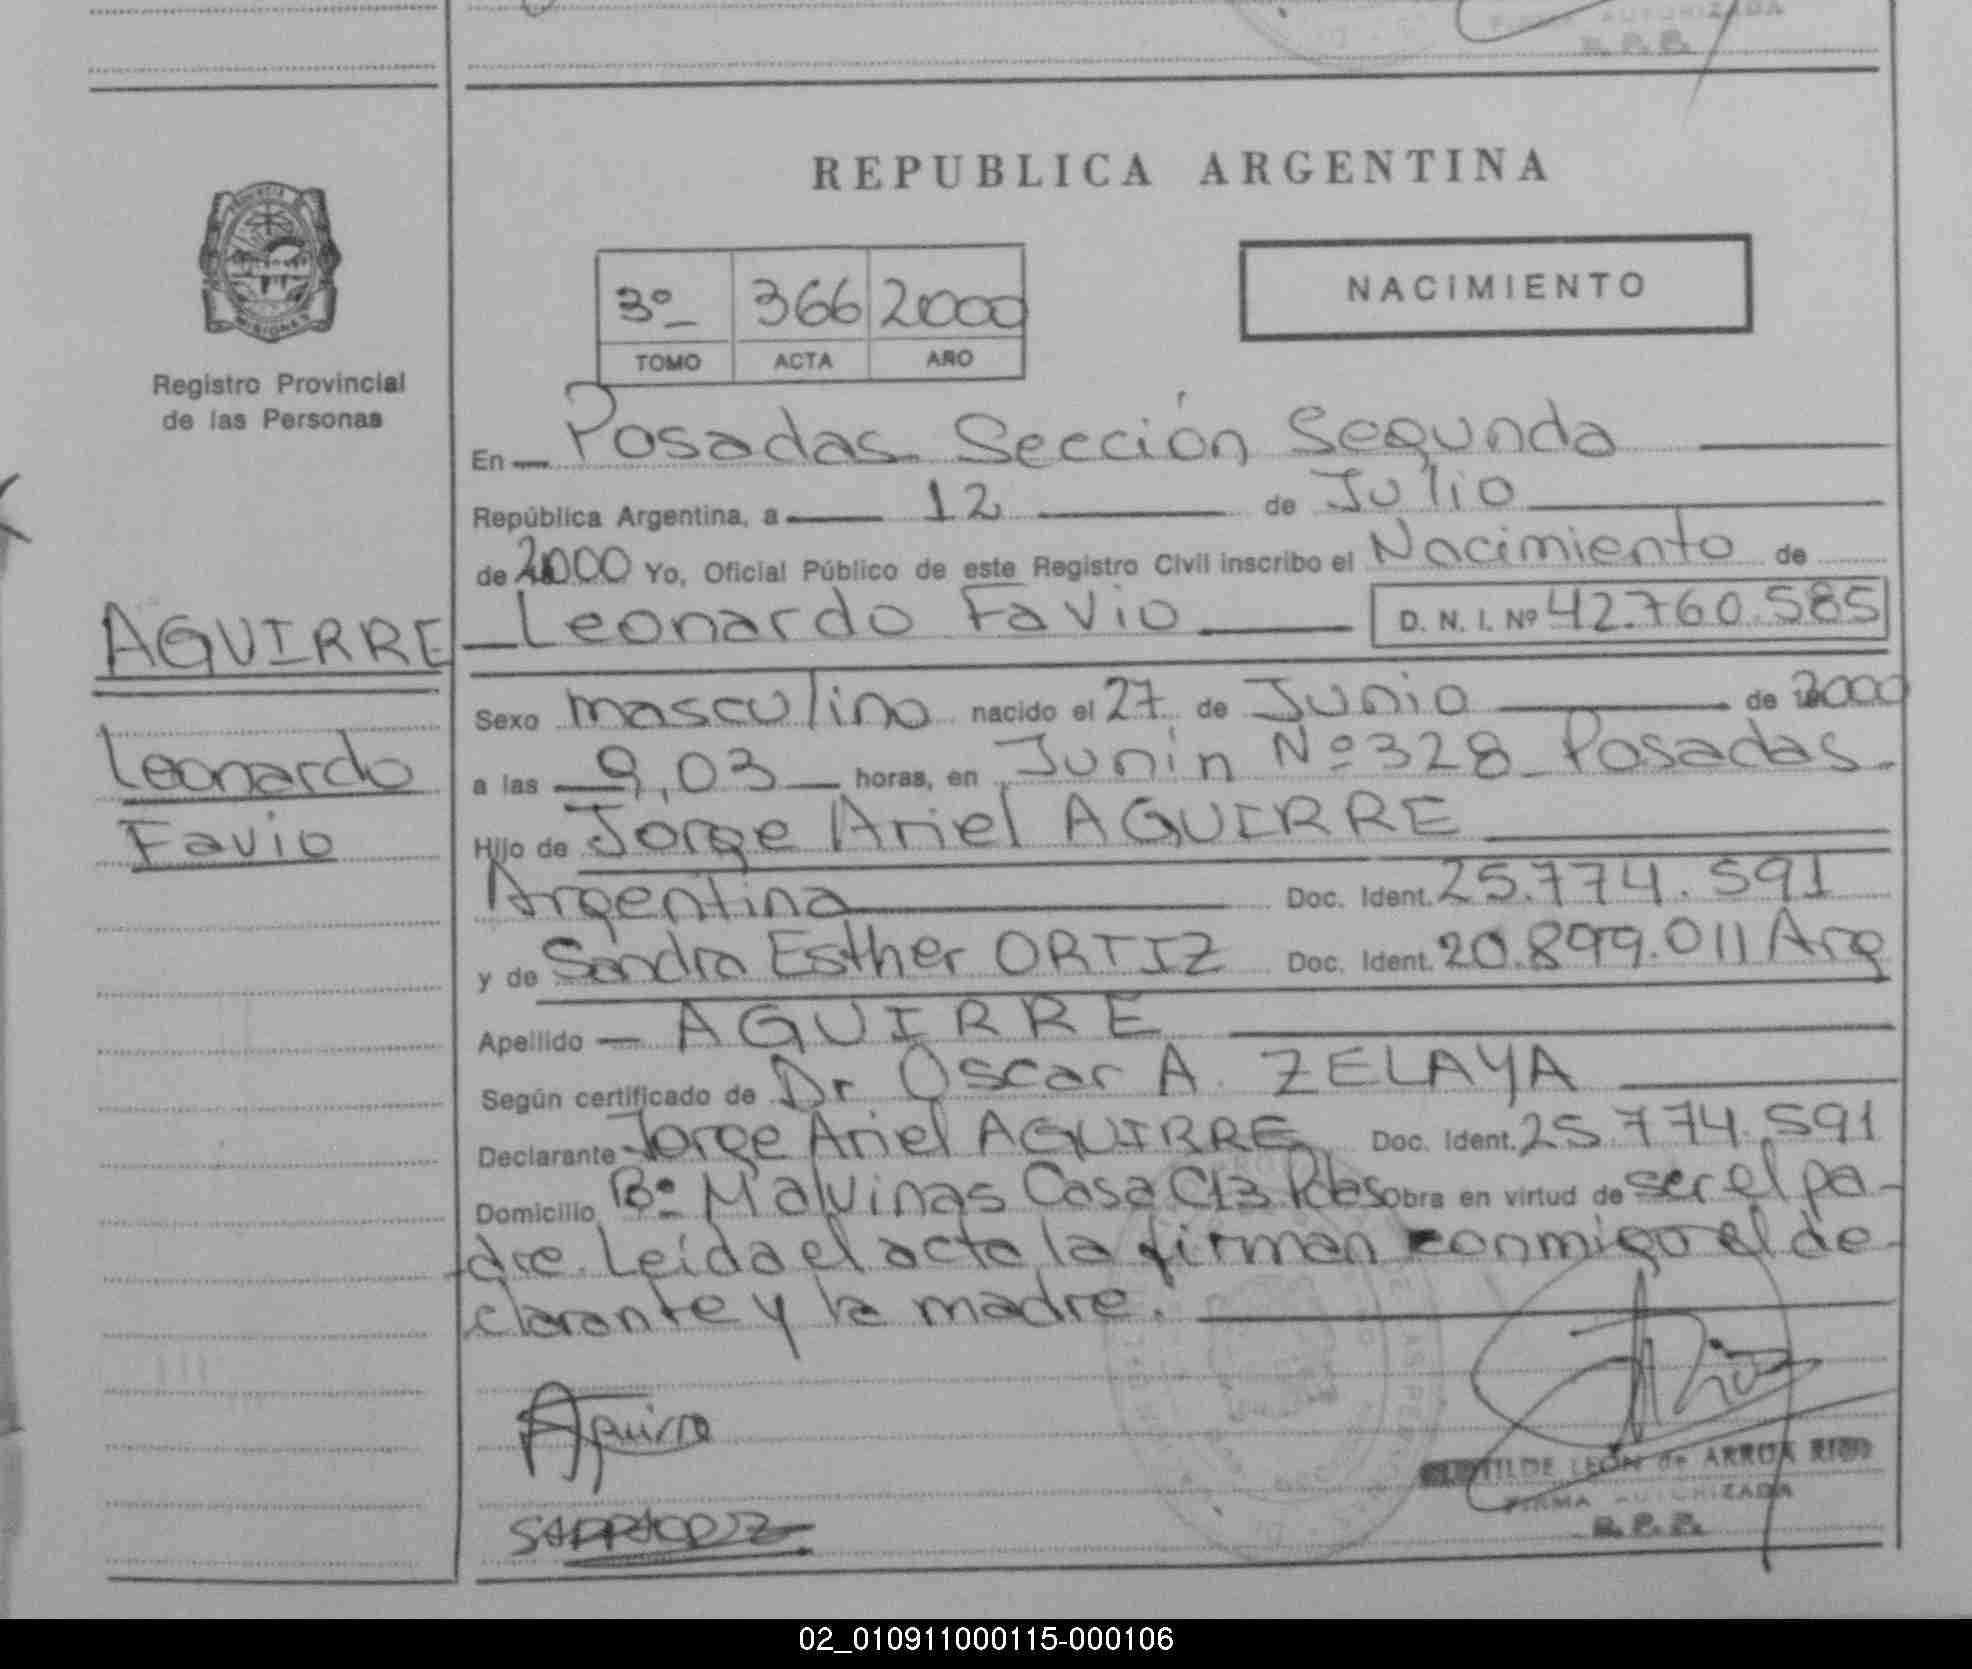 FIRMA AUTORIZADA
R. P. P.
REPUBLICA ARGENTINA
NACIMIENTO
3º 366 2000
TOMO ACTA AÑO
MISIONES
Registro Provincial
de las Personas
En Posadas Sección Segunda
República Argentina, a 12 de Julio
de 2000 Yo, Oficial Público de este Registro Civil inscribo el Nacimiento de
AGUIRRE
Leonardo Favio D. N. I. Nº 42.760.585
Leonardo
Favio
Sexo masculino nacido el 27 de Junio de 2000
a las 9,03 horas, en Junín Nº 328 Posadas.
Hijo de Jorge Ariel AGUIRRE
Argentina Doc. Ident. 25.774.591
y de Sandra Esther ORTIZ Doc. Ident. 20.899.011 Arg
Apellido AGUIRRE
Según certificado de Dr Oscar A. ZELAYA
Declarante Jorge Ariel AGUIRRE Doc. Ident. 25.774.591
Domicilio Bº Malvinas Casa C13 Pdas Obra en virtud de ser el pa-
dre. Leída el acta la firman conmigo el de-
clarante y la madre.
Aguirre
LEON de ARRUA
FIRMA AUTORIZADA
R. P. P.
02_010911000115-000106